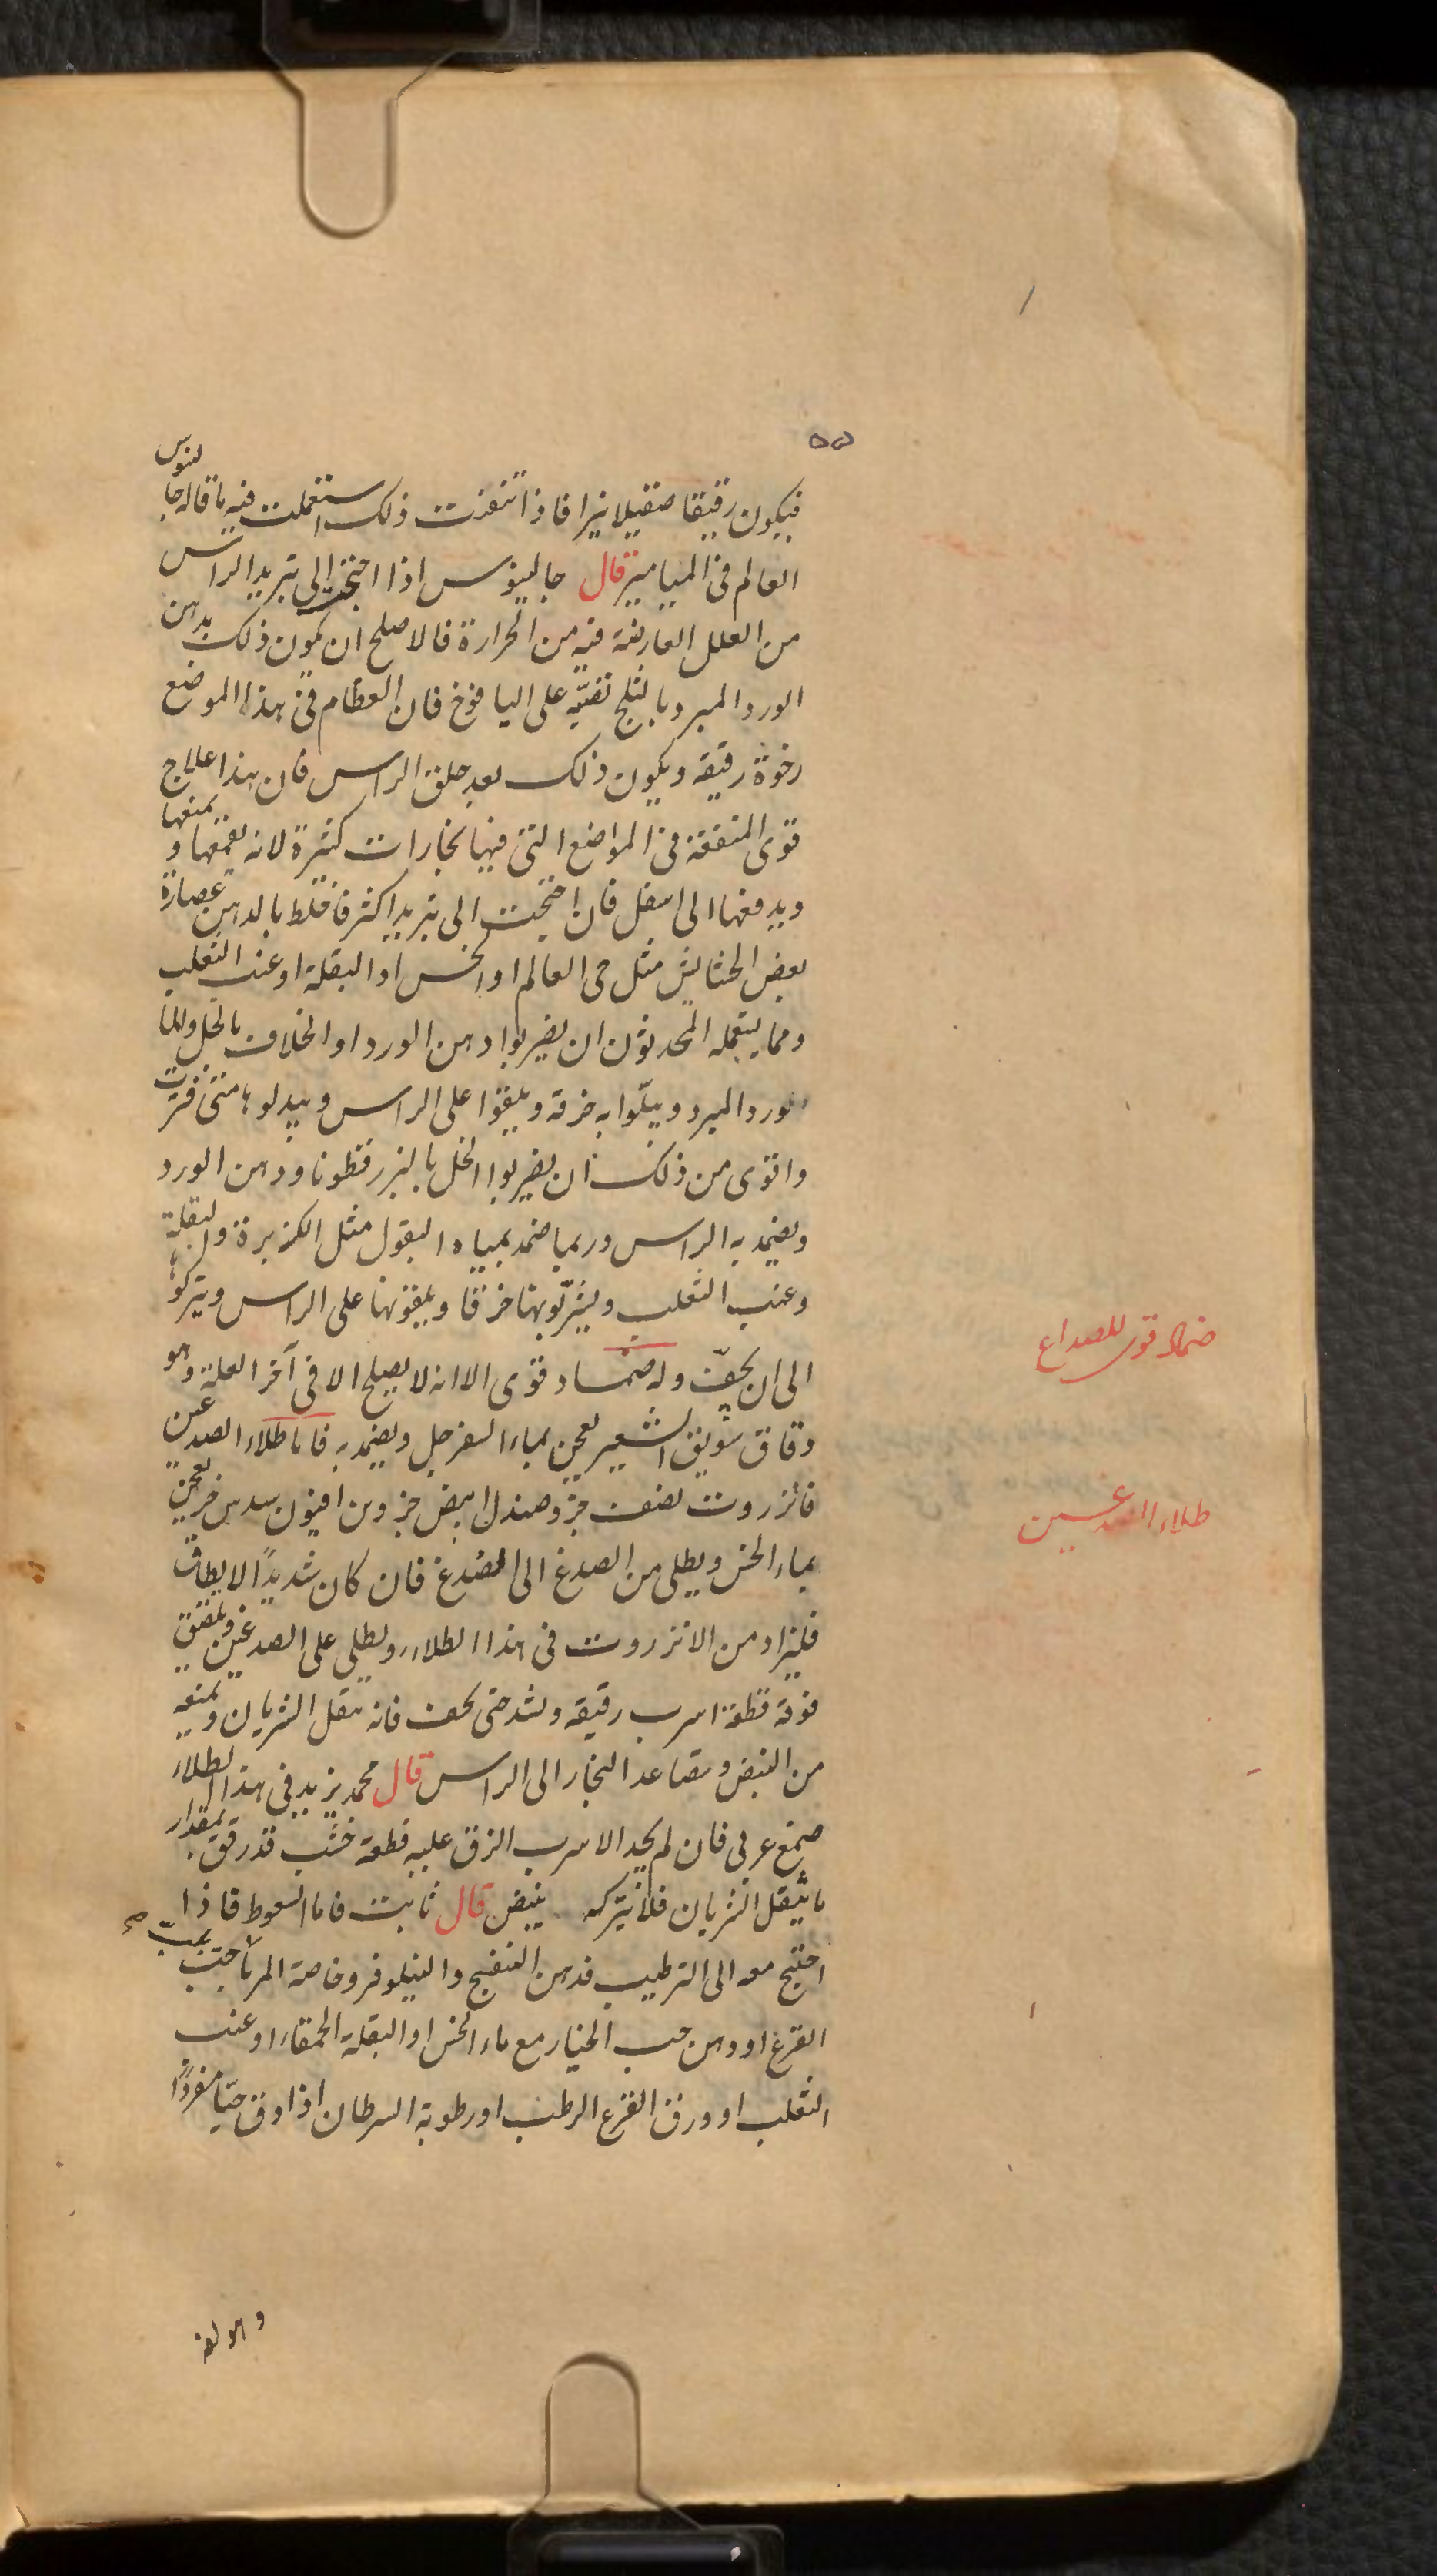 ٥٥
فيكون رقيقا صقيلا نيرا فاذا تنفذت ذلك استعملت فيه ما قاله جالينوس
العالم فى الميامير قال جالينوس اذا احتجت الى تبريد الراس
من العلل العارضة فيه من الحرارة فالاصلح ان يكون ذلك بدهن
الورد المبرد بالثلج تلقيه على اليافوخ فان العظام فى هذا الموضع
رخوة رقيقة ويكون ذلك بعد حلق الراس فان هذا علاج
قوى المنفعة فى المواضع التى فيها بخارات كثيرة لانه يقمعها و يمنعها
ويدفعها الى اسفل فان احتجت الى تبريد اكثر فاخلط بالدهن عصارة
بعض الحشايش مثل حى العالم او الخس او البقلة او عنب الثعلب
ومما يستعمله المحدثون ان يضربوا دهن الورد او الخلاف بالخل والماء
ورد المبرد ويبلّوا به خرقة ويلقوا على الراس ويبدلوها متى فترت
واقوى من ذلك ان يضربوا الخل بالبزر قطونا ودهن الورد
ويضمد به الراس وربما ضمد بمياه البقول مثل الكزبرة والبقلة
وعنب الثعلب ويشرّبونها خرقا ويلقونها على الراس ويتركونها
الى ان يجفّ وله ضماد قوى الا انه لا يصلح الا فى آخر العلة وهو
دقاق سويق الشعير يعجن بماء السفرجل ويضمد به فاما طلاء الصدغين
فانزروت نصف جزو صندل ابيض جزو من افيون سدس جزء يعجن
بماء الخس ويطلى من الصدغ الى الصدغ فان كان شديدًا لا يطاق
فليزاد من الانزروت فى هذا الطلاء ويطلى على الصدغين ويلصق
فوقه قطعة اسرب رقيقة ويشد حتى يجف فانه يثقل الشريان ويمنعه
من النبض وتصاعد البخار الى الراس قال محمد يزيد فى هذا الطلاء
صمغ عربى فان لم يجد الاسرب الزق عليه قطعة خشب قد رقق بمقدار
ما يثقل الشريان فلا يتركه ينبض قال ثابت فاما السعوط فاذا
احتيج معه الى الترطيب فدهن البنفسج والنيلوفر وخاصة المربا بحب
القرع او دهن حب الخيار مع ماء الخس او البقلة الحمقاء او عنب
الثعلب او ورق القرع الرطب او رطوبة السرطان اذا دق حيّا مفردًا
ضماد قوى للصداع
طلاء الصدغين